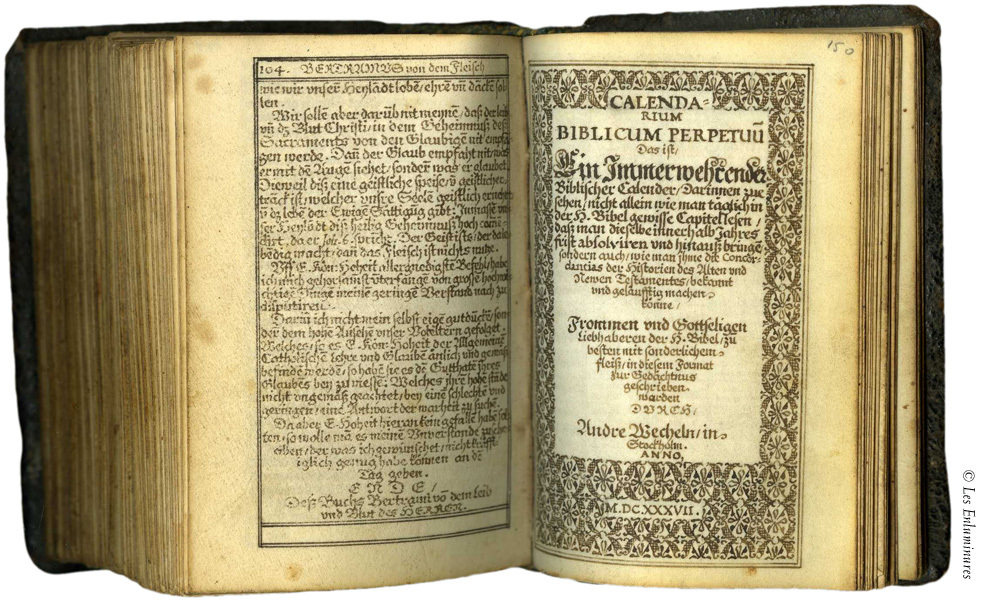 104. BERTRAMVS von dem Fleisch
wie wir vnserñ Heylãdt lobẽ/ ehrẽ vñ dãckẽ sol
len.
Wir sollẽ aber darüb nit meynẽ/ daß der leib
vñ dz Blut Christi/ in dem Geheimnuß deß
Sacraments von den Glaubigẽ nit empfã
gen werde. Dañ der Glaub empfaht nit/ was
er mit dẽ Auge siehet/ sondern was er glaubet.
Dieweil diß eine geistliche speise/ vñ geistlicher
trãck ist/ welcher vnsre Seele geistlich
vñ dz lebẽ der Ewigẽ Sättigũg gibt: Inmaßẽ vn
ser Heylãdt diß heilig Geheimnuß hoch
da er Joh. 6. spricht. Der Geist ists/ der
bẽdig macht/ dañ das Fleisch ist nichts nutze.
Vff E. Kön: Hoheit allergnedigstẽ Befehl/ habe
ich mich gehorsamst vnterfangẽ von
Dinge meinẽ geringẽ Verstand nach zu
disputiren.
Darin ich nicht mein selbst eigẽ gutdückẽ/ son
der dem hohẽ Ansehẽ vnser Voreltern gefolget.
Welches/ so es E. Kön: Hoheit der Allgemeinẽ
Catholischẽ Lehre vnd Glaubẽ änlich vnd gemäß
befindẽ werdẽ/ so habẽ sie es dẽ Gutthatẽ ihres
Glaubẽs bey zu messẽ: Welches ihrẽ hohẽ stãde
nicht vngemäß geachtet/ bey eine schlechtẽ vnd
geringẽn/ eine Antwort der warheit zu suchẽ.
Da aber E. Hoheit hieran kein gefallẽ habẽ sol
ten/ so wolle mã es meinẽ Vnverstande
der was ich gewünschet/ nicht
iglich genug habe können an dẽ
Tag geben.
ENDE/
Deß Buchs Bertrami võ dem Leib
vnd Blut des HERREN.
150
CALENDA=
RIUM
BIBLICUM PERPETUŨ
Das ist/
Ein Immerwehrender
Biblischer Calender/ Darinnen zue
sehen/ nicht allein wie man täglich in
der H. Bibel gewisse Capitel lesen/
daß man dieselbe innerhalb Jahres
frist absolviren vnd hinauß bringẽ
sondern auch/ wie man ihme die Concor-
dantias der Historien des Alten vnd
Newen Testamentes/ bekannt
vnd geläuffig machen
könne/
Frommen vnd Gottseligen
Liebhaberen der H. Bibel/ zu
besten mit sonderlichem
fleiß/ in diesem Format
zur Gedächtnus
geschrieben
warden
DVRCH/
Andre Wecheln/ in
Stockholm.
ANNO,
M.DC.XXXVII.
© Les Enluminures